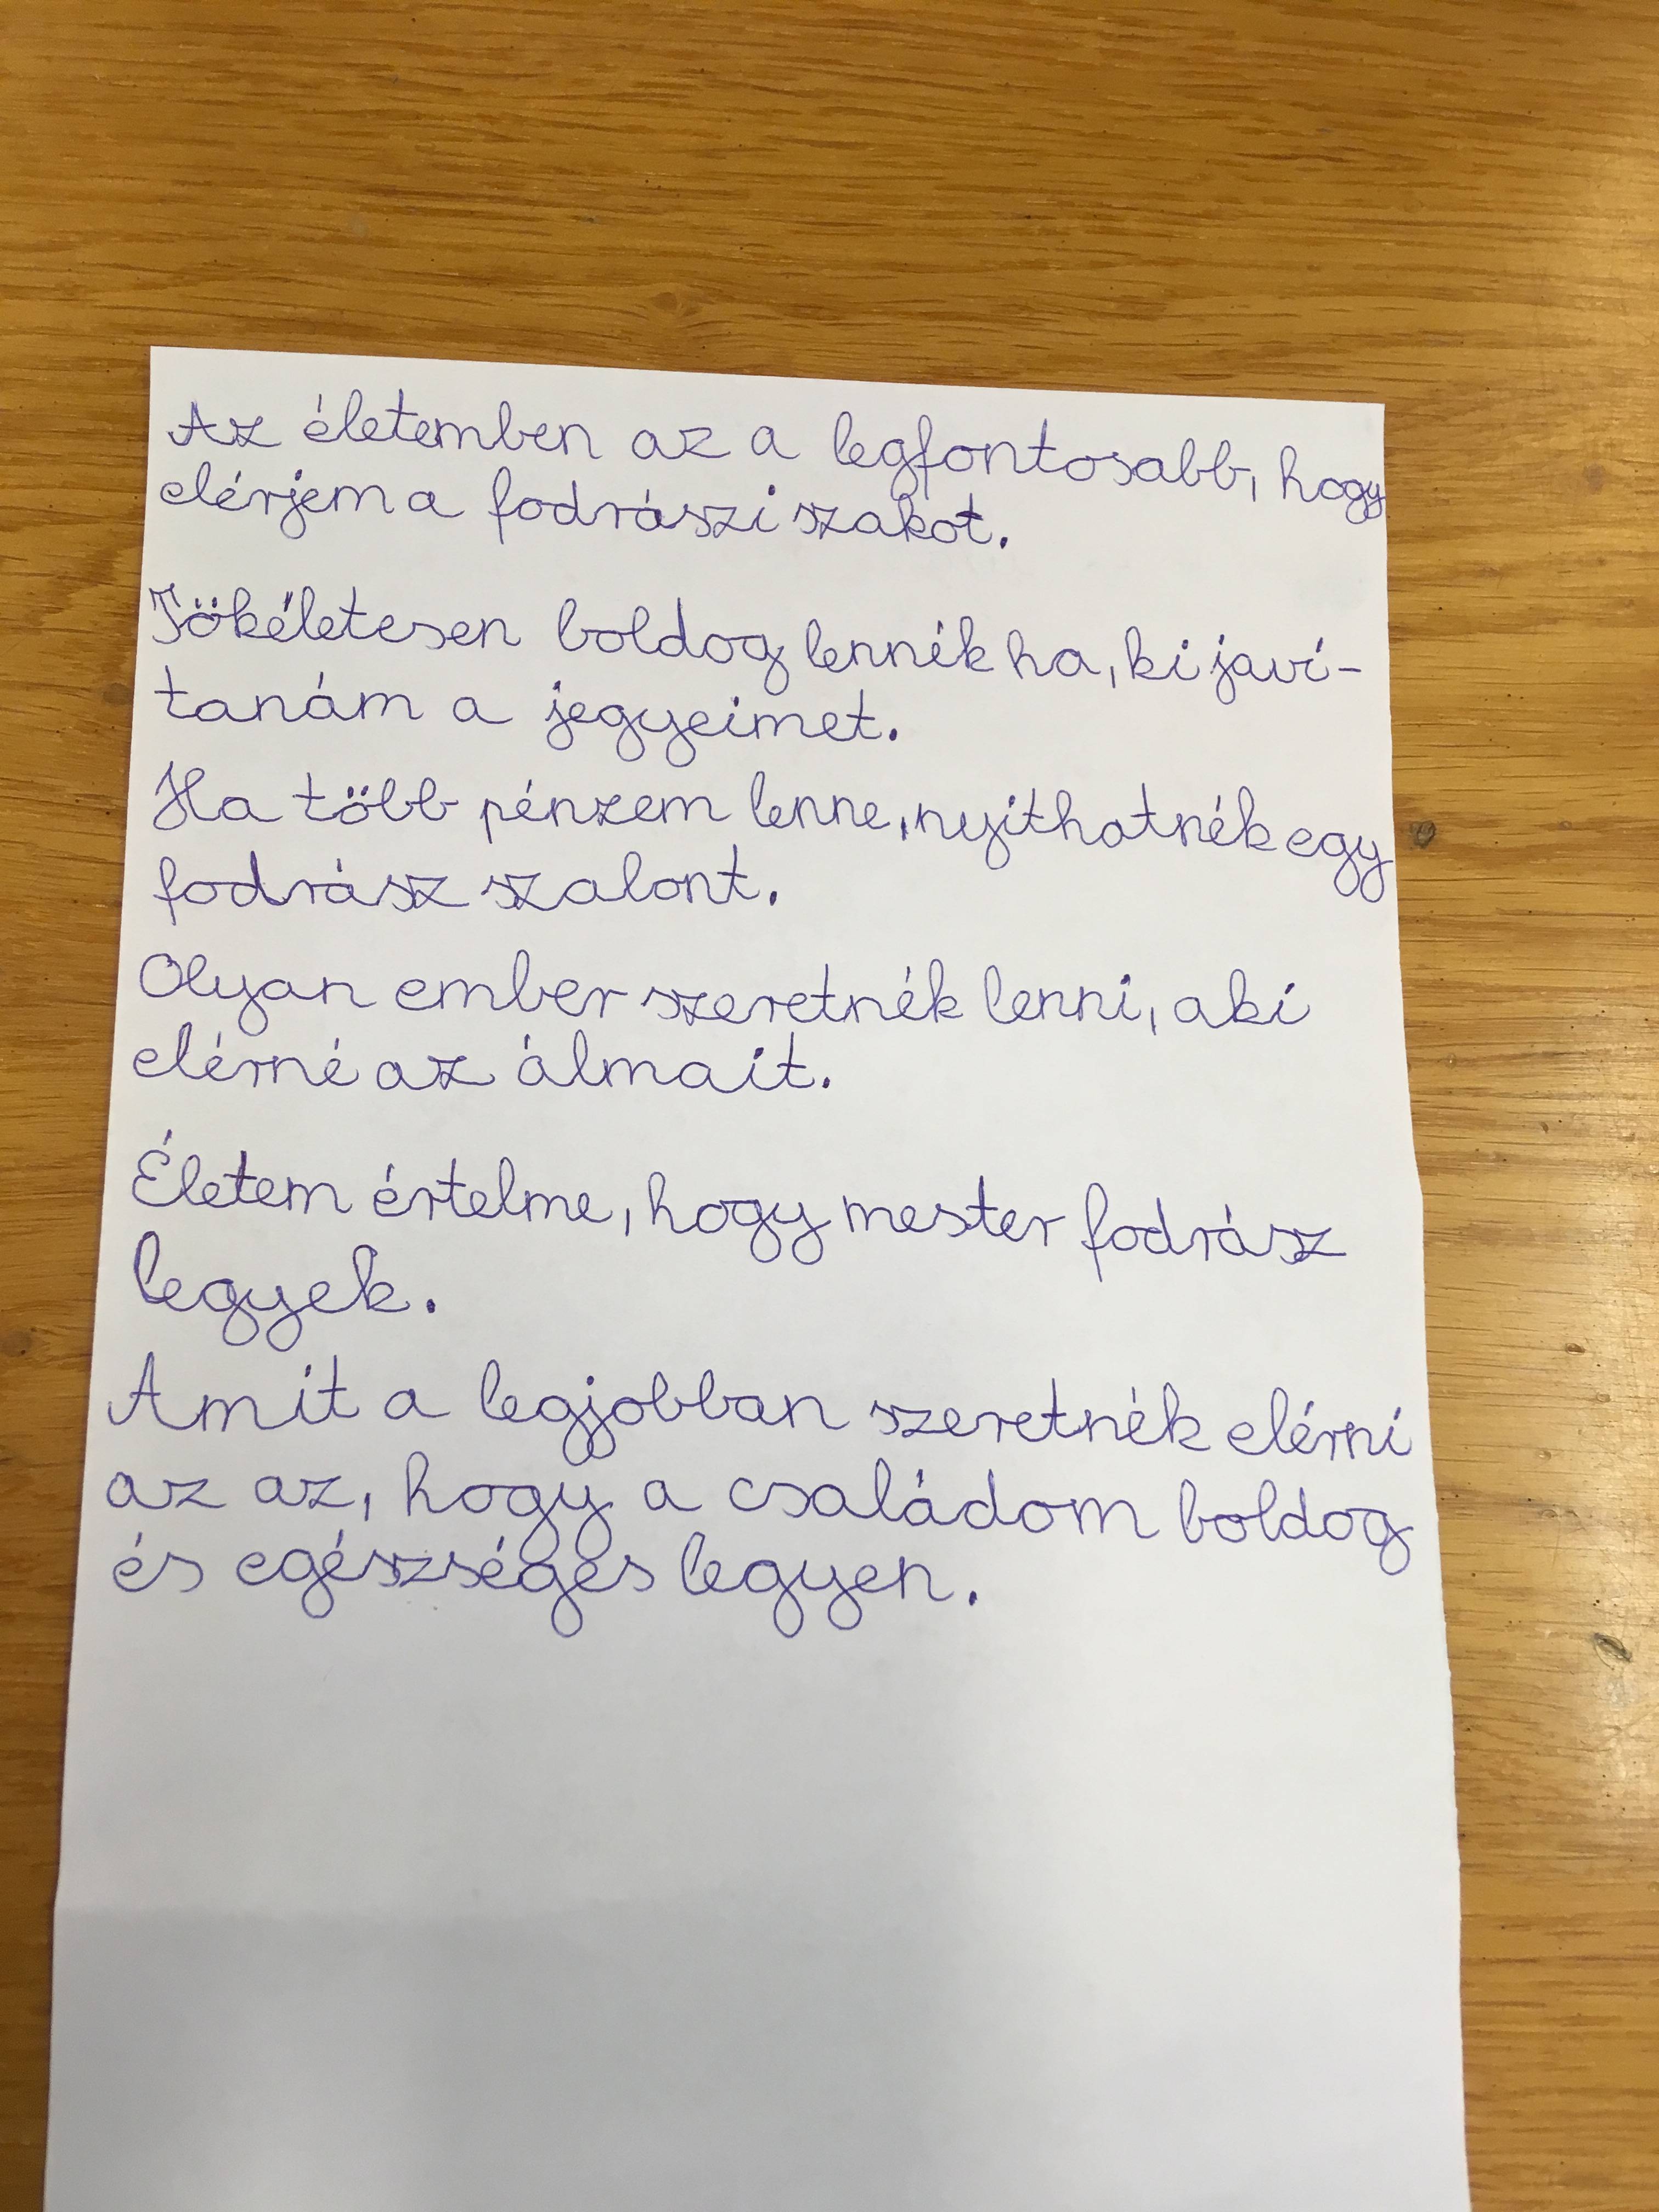 Az életemben az a legfontosabb, hogy
elérjem a fodrászi szakot.
Tökéletesen boldog lennék ha, kijaví-
tanám a jegyeimet.
Ha több pénzem lenne, nyithatnék egy
fodrász szalont.
Olyan ember szeretnék lenni, aki
elérné az álmait.
Életem értelme, hogy mester fodrász
legyek.
Amit a legjobban szeretnék elérni
az az, hogy a családom boldog
és egészséges legyen.